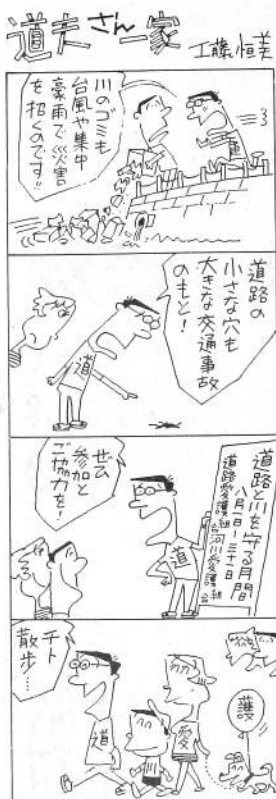 道夫さん一家
工藤恒美
川のゴミも
台風や集中
豪雨で災害
を招くのです!!
道路の
小さな穴も
大きな交通事故
のもと!
道
道路と川を守る月間
八月一日~三十一日
道路愛護組合
河川愛護組合
ぜひ
参加と
ご協力を!
道
チト
散歩…
道
川
愛
護